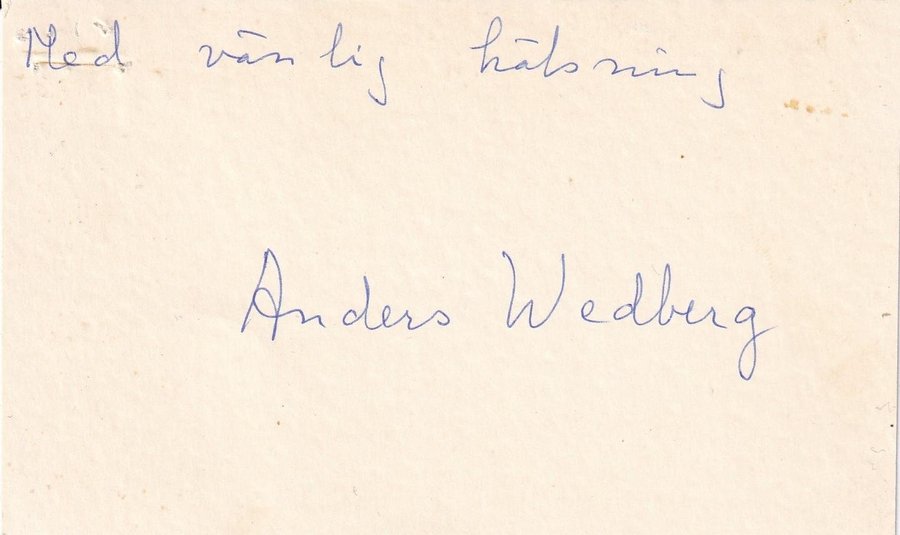 Med vänlig hälsning
Anders Wedberg